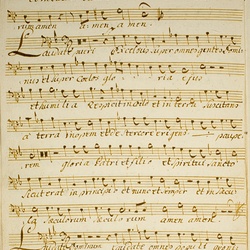 rum amen a men a men
Laudate pueri excelsus super omnes gentes Domi
nus et super Coelos glo ria ejus
et humilia respicit in Coelo et in terra suscitans
a terra inopem et de stercore erigens paupe
rem gloria Patri et filio et Spiritui sancto
Sicut erat in principio et nunc et semper et in saecu
la saeculorum saeculo rum amen amen
Laudate Dominum laudate omnes populi